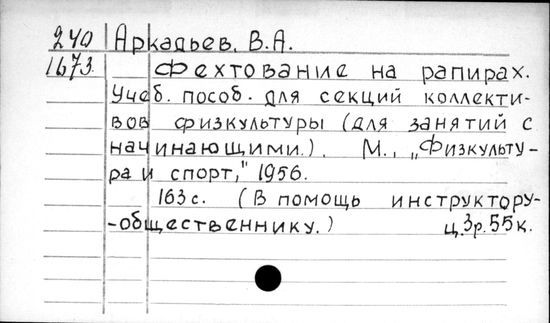 240 Аркадьев, В.А.
1673. Фехтование на рапирах.
Учеб. пособ. для секций коллекти-
вов физкультуры (для занятий с
начинающими.). М., „Физкульту-
ра и спорт," 1956.
163 с. (В помощь инструктору-
-общественнику.) ц. 3р. 55к.